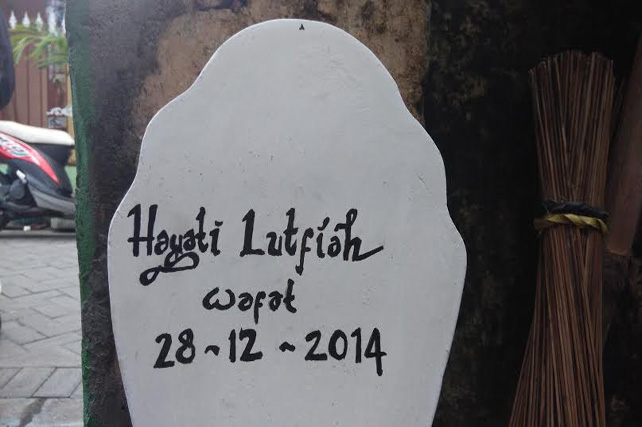 Hayati Lutfiah
wafat
28-12-2014